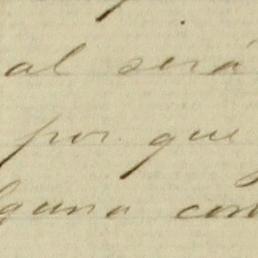 al será
por que
lguna con